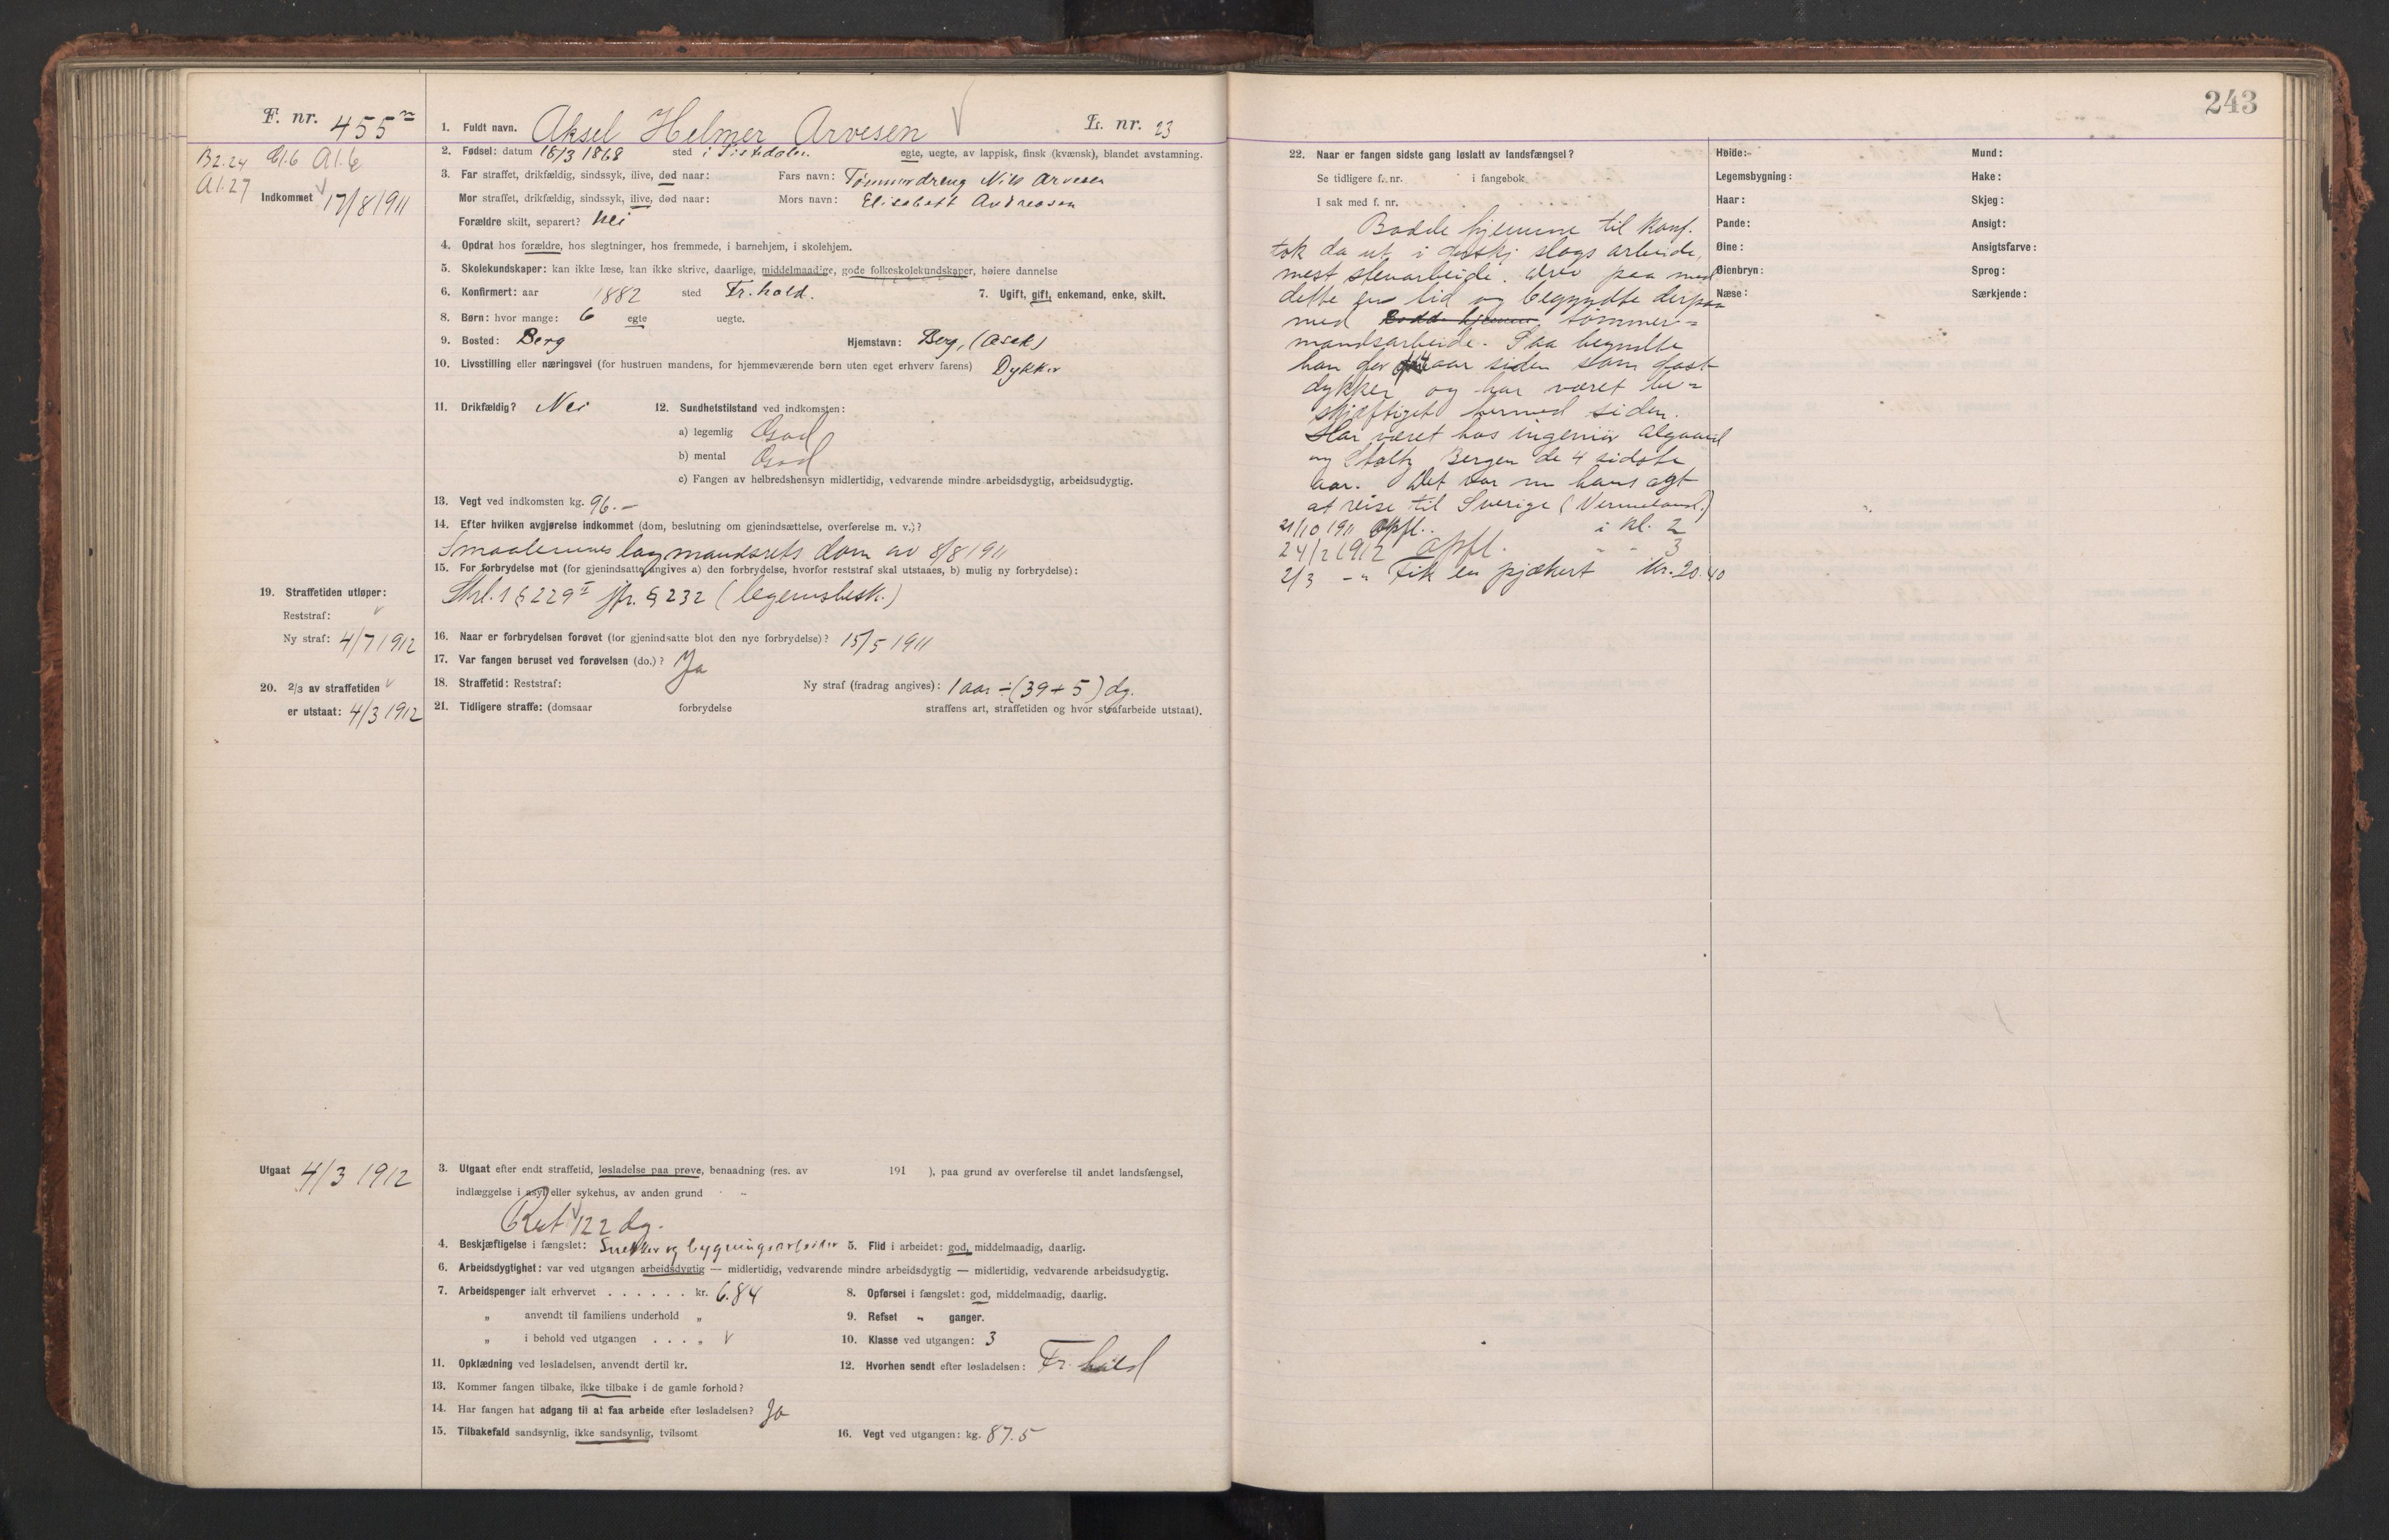 F. nr. 455
B2.24 B1.6 A1.6
A1.27
Indkommet 17/8 1911
1. Fuldt navn. Aksel Helmer Arvesen
L. nr. 23
2. Fødsel: datum 18/3 1868 sted i Tistedalen egte, uegte, av lappisk, finsk (kvænsk), blandet avstamning.
3. Far straffet, drikfældig, sindssyk, ilive, død naar: Fars navn: Tømmerdreng Nils Arvesen
Mor straffet, drikfældig, sindssyk, ilive, død naar: Mors navn: Elisabett Andreasen
Forældre skilt, separert? Nei
4. Opdrat hos forældre, hos slegtninger, hos fremmede, i barnehjem, i skolehjem.
5. Skolekundskaper: kan ikke læse, kan ikke skrive, daarlige, middelmaadige, gode folkeskolekundskaper, høiere dannelse
6. Konfirmert: aar 1882 sted Fr.hald. 7. Ugift, gift, enkemand, enke, skilt.
8. Børn: hvor mange: 6 egte uegte.
9. Bosted: Berg Hjemstavn: Berg, (Asak)
10. Livsstilling eller næringsvei (for hustruen mandens, for hjemmeværende børn uten eget erhverv farens) Dykker
11. Drikfældig? Nei 12. Sundhetstilstand ved indkomsten:
a) legemlig God
b) mental God
c) Fangen av helbredshensyn midlertidig, vedvarende mindre arbeidsdygtig, arbeidsudygtig.
13. Vegt ved indkomsten kg. 96.–
14. Efter hvilken avgjørelse indkommet (dom, beslutning om gjenindsættelse, overførelse m. v.)?
Smaalenenes lagmandsrets dom av 8/8 1911
15. For forbrydelse mot (for gjenindsatte angives a) den forbrydelse, hvorfor reststraf skal utstaaes, b) mulig ny forbrydelse):
Strl. § 229 I jfr. § 232 (legemsbesk.)
16. Naar er forbrydelsen forøvet (for gjenindsatte blot den nye forbrydelse)? 15/5 1911
17. Var fangen beruset ved forøvelsen (do.)? Ja
18. Straffetid: Reststraf: Ny straf (fradrag angives): 1 aar ÷ (39 + 5) dg.
19. Straffetiden utløper:
Reststraf:
Ny straf: 4/7 1912
20. 2/3 av straffetiden
er utstaat: 4/3 1912
21. Tidligere straffe: (domsaar forbrydelse straffens art, straffetiden og hvor strafarbeide utstaat).
Utgaat 4/3 1912
3. Utgaat efter endt straffetid, løsladelse paa prøve, benaadning (res. av 191 ), paa grund av overførelse til andet landsfængsel,
indlæggelse i asyl eller sykehus, av anden grund
Rest 122 dg.
4. Beskjæftigelse i fængslet: Snekker og bygningsarbeider 5. Flid i arbeidet: god, middelmaadig, daarlig.
6. Arbeidsdygtighet: var ved utgangen arbeidsdygtig — midlertidig, vedvarende mindre arbeidsdygtig — midlertidig, vedvarende arbeidsudygtig.
7. Arbeidspenger ialt erhvervet . . . . . . kr. 6.84 8. Opførsel i fængslet: god, middelmaadig, daarlig.
„ anvendt til familiens underhold „ 9. Refset „ ganger.
„ i behold ved utgangen . . . „ 10. Klasse ved utgangen: 3
11. Opklædning ved løsladelsen, anvendt dertil kr. 12. Hvorhen sendt efter løsladelsen: Fr.hald
13. Kommer fangen tilbake, ikke tilbake i de gamle forhold?
14. Har fangen hat adgang til at faa arbeide efter løsladelsen? Ja
15. Tilbakefald sandsynlig, ikke sandsynlig, tvilsomt 16. Vegt ved utgangen: kg. 87.5
243
22. Naar er fangen sidste gang løslatt av landsfængsel?
Se tidligere f. nr. i fangebok
I sak med f. nr.
Bodde hjemme til konf.
tok da ut i forskj slags arbeide,
mest stenarbeide. drev paa med
dette en tid og begyndte derpaa
med Bodde hjemme tømmer=
mandsarbeide. Saa begyndte
han for aar siden som
dykker og har været be=
skjæftiget hermed siden.
Har været hos ingeniør Algaard
og Stoltz Bergen de 4 sidste
aar. Det var nu hans agt
at reise til Sverige (Vermeland.)
21/10 1911 Opfl. i kl. 2
24/2 1912 Opfl. " " 3
2/3 -" Fik en pjækert Kr. 20.40
Høide:
Legemsbygning:
Haar:
Pande:
Øine:
Øienbryn:
Næse:
Mund:
Hake:
Skjeg:
Ansigt:
Ansigtsfarve:
Sprog:
Særkjende: